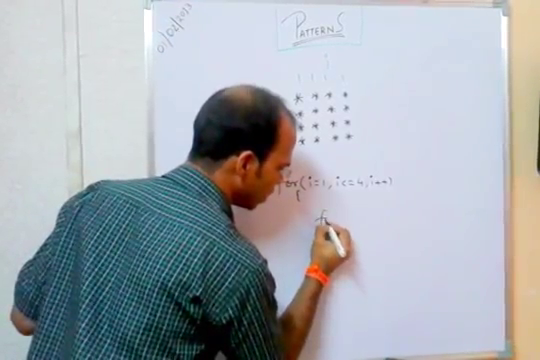 01/02/2013
PATTERNS
j
1 1 1 1
* * * *
* * * *
* * * *
* * * *
for(i=1,i<=4,i++)
{
f